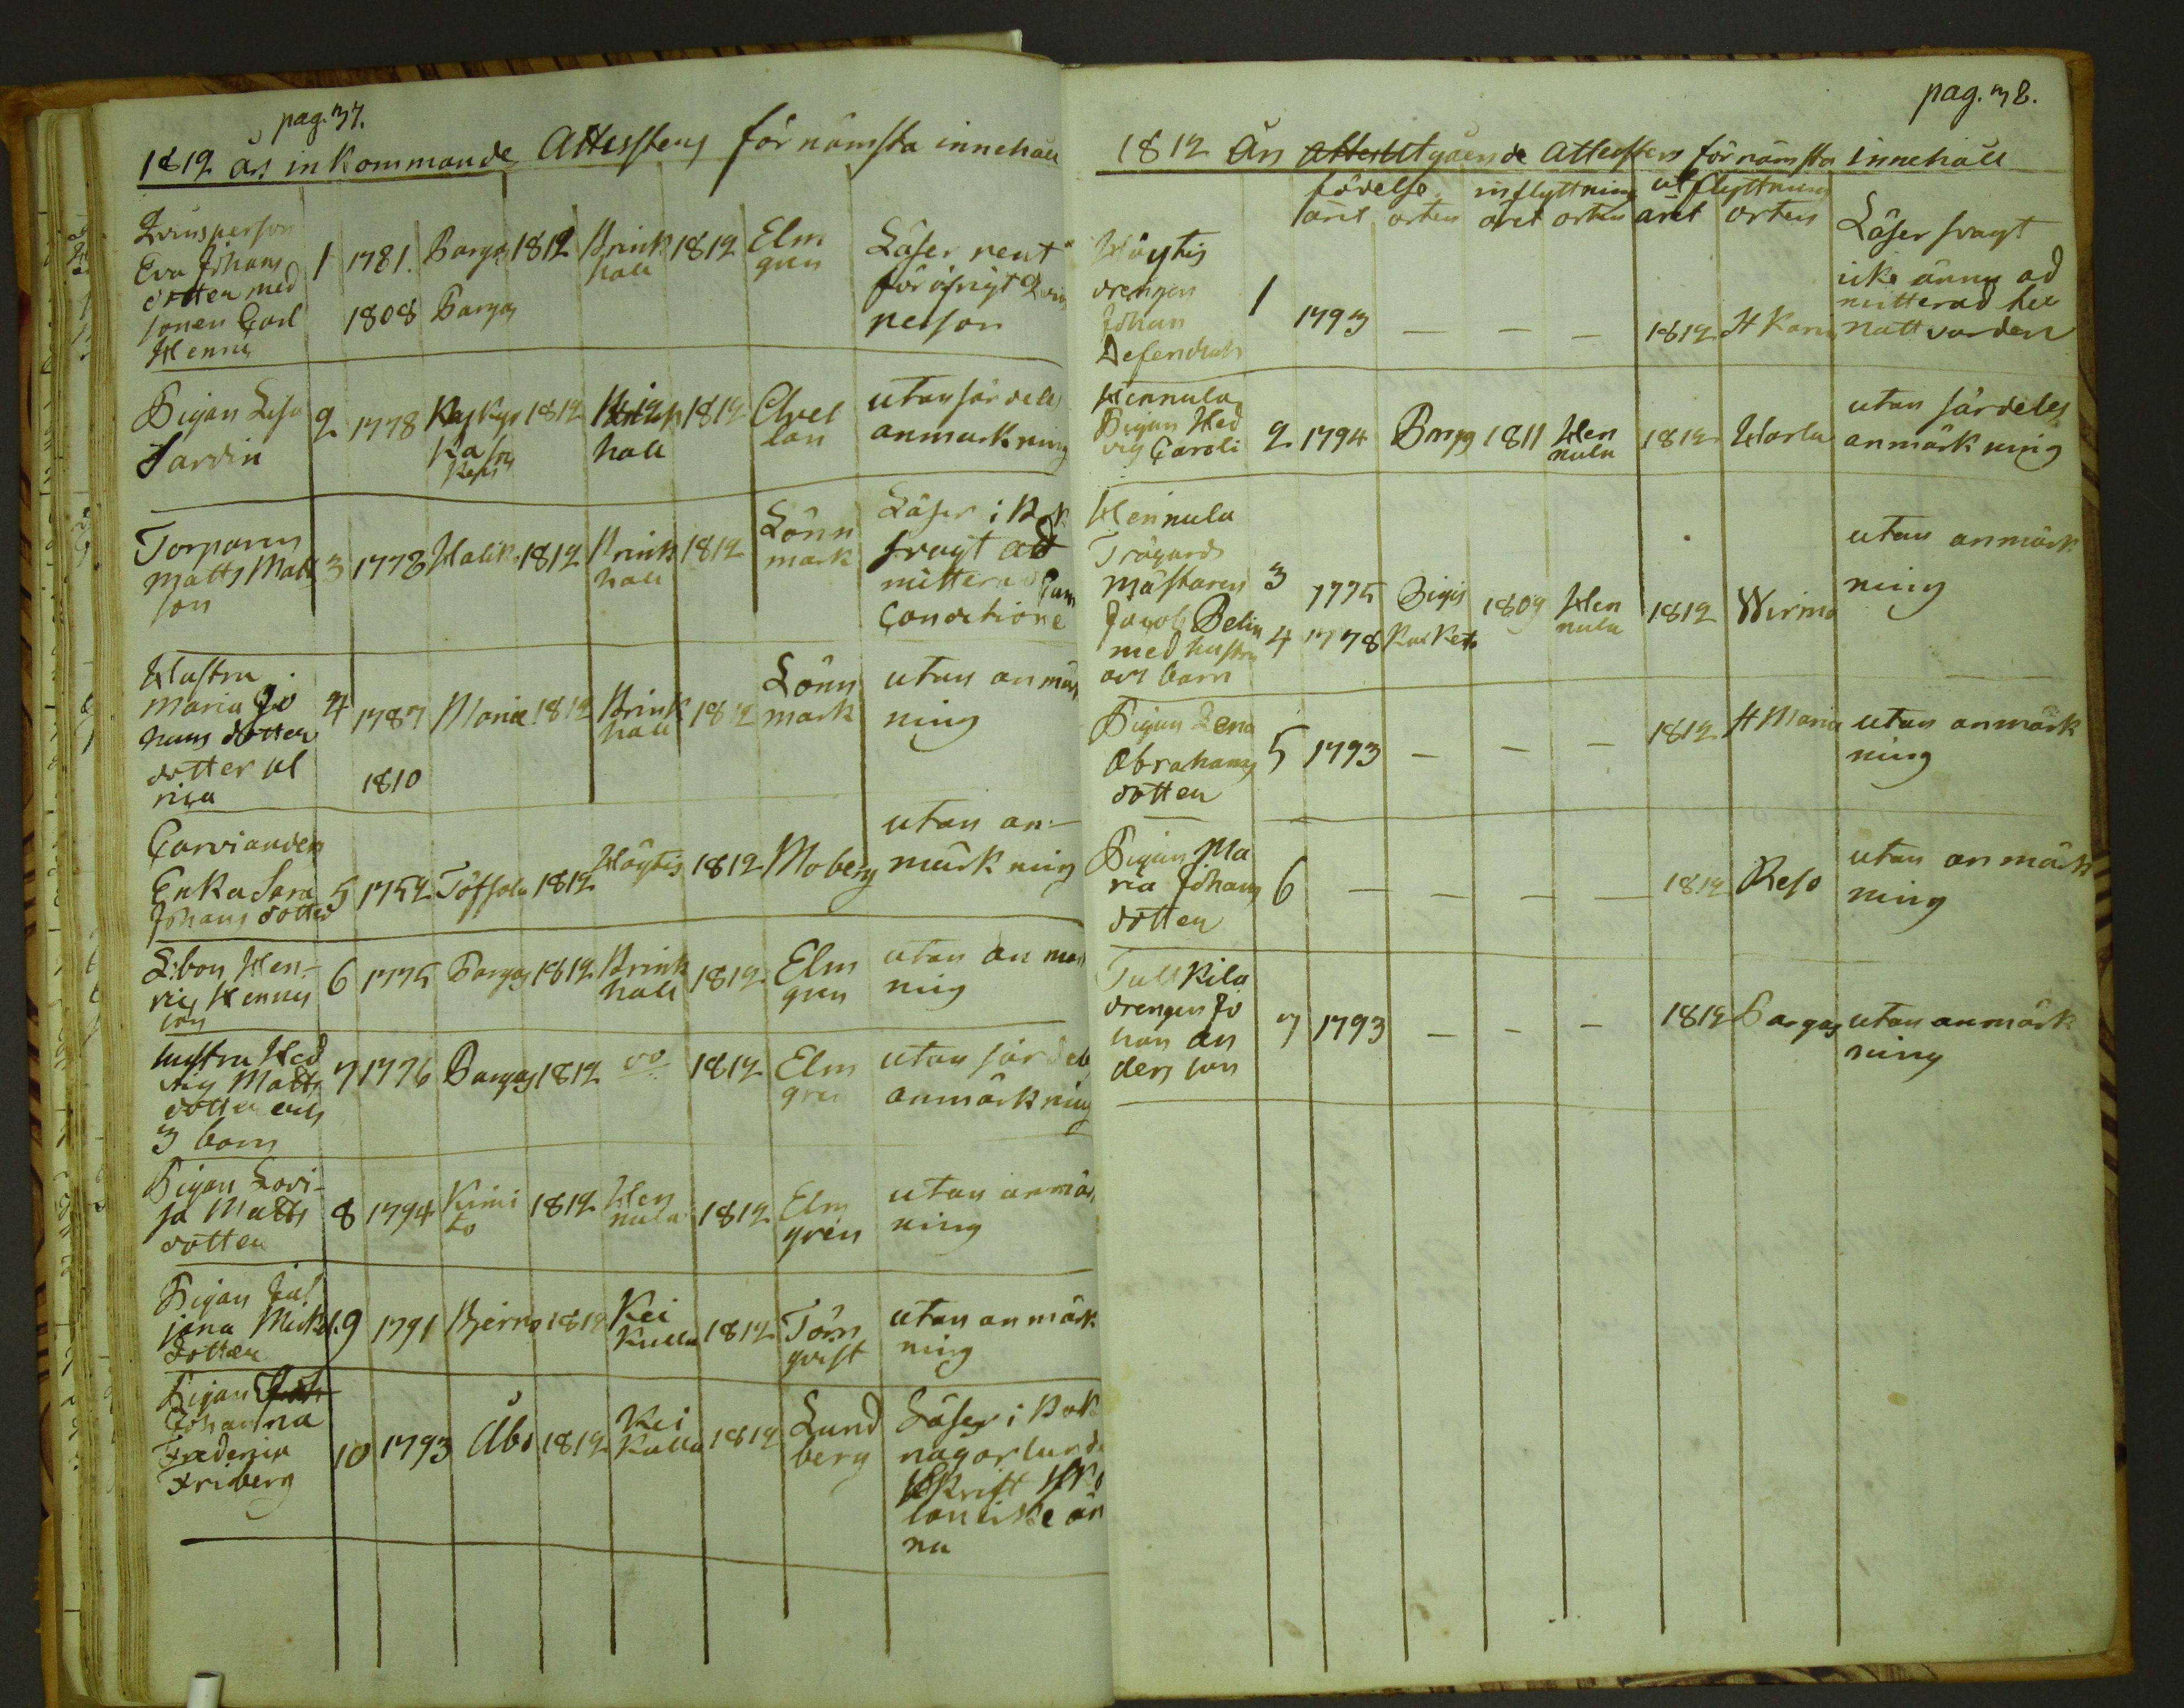 pag. 37.
1812 års inkommande Attesters förnämsta innehåll
Qvinsperson
Eva Johans
dotter med
sonen Carl
Henric
1 1781. Pargas 1812 Brink
hall 1812 Elm
gren
1808 Pargas
Läser rent
för öfrigt Qvins
person
Pigan Lisa
Sardin
2 1778 1812 Brink
hall 1812
utan särdeles
anmärkning
Torparen
Matts Matts
son
3 1778 Haliko 1812 Brink
hall 1812 Lönn
mark
Läser i Bok
svagt ad
mitterad cum
Conditione
Hustru
Maria Jo
hans dotter
dotter Ul
rica
4 1787 Maria 1812 Brink
hall 1812 Lönn
mark
1810
utan anmärk
ning
Enka Sara
Johans dotter
5 1752 Töfsala 1812 Höytis 1812 Moberg
utan an-
märkning
Hen-
ric Hennis
son
6 1775 Pargas 1812 Brink
hall 1812 Elm
gren
utan an märk
ning
hustru Hed
vig Matts
dotter och
3 barn
7 1776 Pargas 1812 do 1812 Elm
gren
utan särdeles
anmärkning
Pigan Lovi-
sa Matts
dotter
8 1794 Kimi
to 1812 Hen
nula 1812 Elm
gren
utan anmärk
ning
Pigan Jul
jana Mickels
dotter
9 1791 Bjerno 1812 Kei
kulla 1812 Törn
qvist
utan anmärk
ning
Pigan
Johanna
Fredericа
Friberg
10 1793 Åbo 1812 Kei
kulla 1812 Lund
berg
Läser i Bok
någorlunda
skrift
icke än
nu
pag. 38.
1812 Års Utgående Attesters förnämsta Innehåll
födelse inflyttning utflyttning
året orten året orten året orten
Höytis
drengen
Johan
Defendrats
1 1793 — — — 1812 St Karin
Läser svagt
icke ännu ad
mitterad he
nattvarden
Hennula
Pigan Hed
vig Caroli
2 1794 Pargas 1811 Hen
nula 1812
utan särdeles
anmärkning
Hennula
Trägards
mästaren
Jacob Belin
med hustru
och barn
3 1775 1809 Hen
nula 1812 Wirmo
4 1778
utan anmärk
ning
Pigan Lena
Abrahams
dotter
5 1793 — — — 1812 St Maria
utan anmärk
ning
Pigan Ma
ria Johans
dotter
6 — — — — 1812 Reso
utan anmärk
ning
Tullkila
drengen Jo
han An
ders son
7 1793 — — — 1812 Pargas
utan anmärk
ning